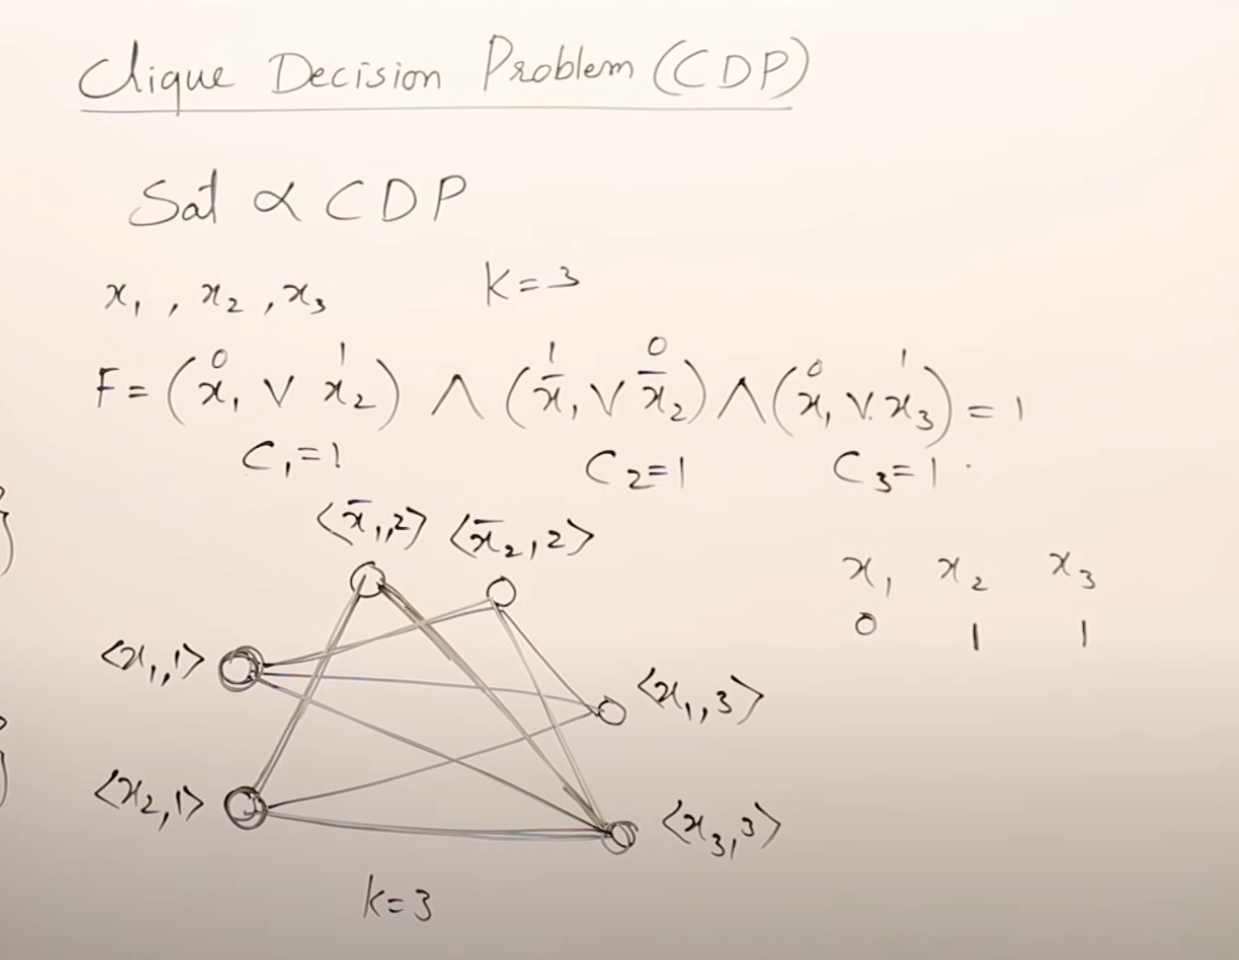 Clique Decision Problem (CDP)
Sat ∝ CDP
x₁ , x₂ , x₃ K=3
0 1 1 0 0 1
F = (x₁ ∨ x₂) ∧ (x̄₁ ∨ x̄₂) ∧ (x₁ ∨ x₃) = 1
C₁=1 C₂=1 C₃=1
⟨x̄₁,2⟩ ⟨x̄₂,2⟩
x₁ x₂ x₃
0 1 1
⟨x₁,1⟩
⟨x₁,3⟩
⟨x₂,1⟩
⟨x₃,3⟩
k=3